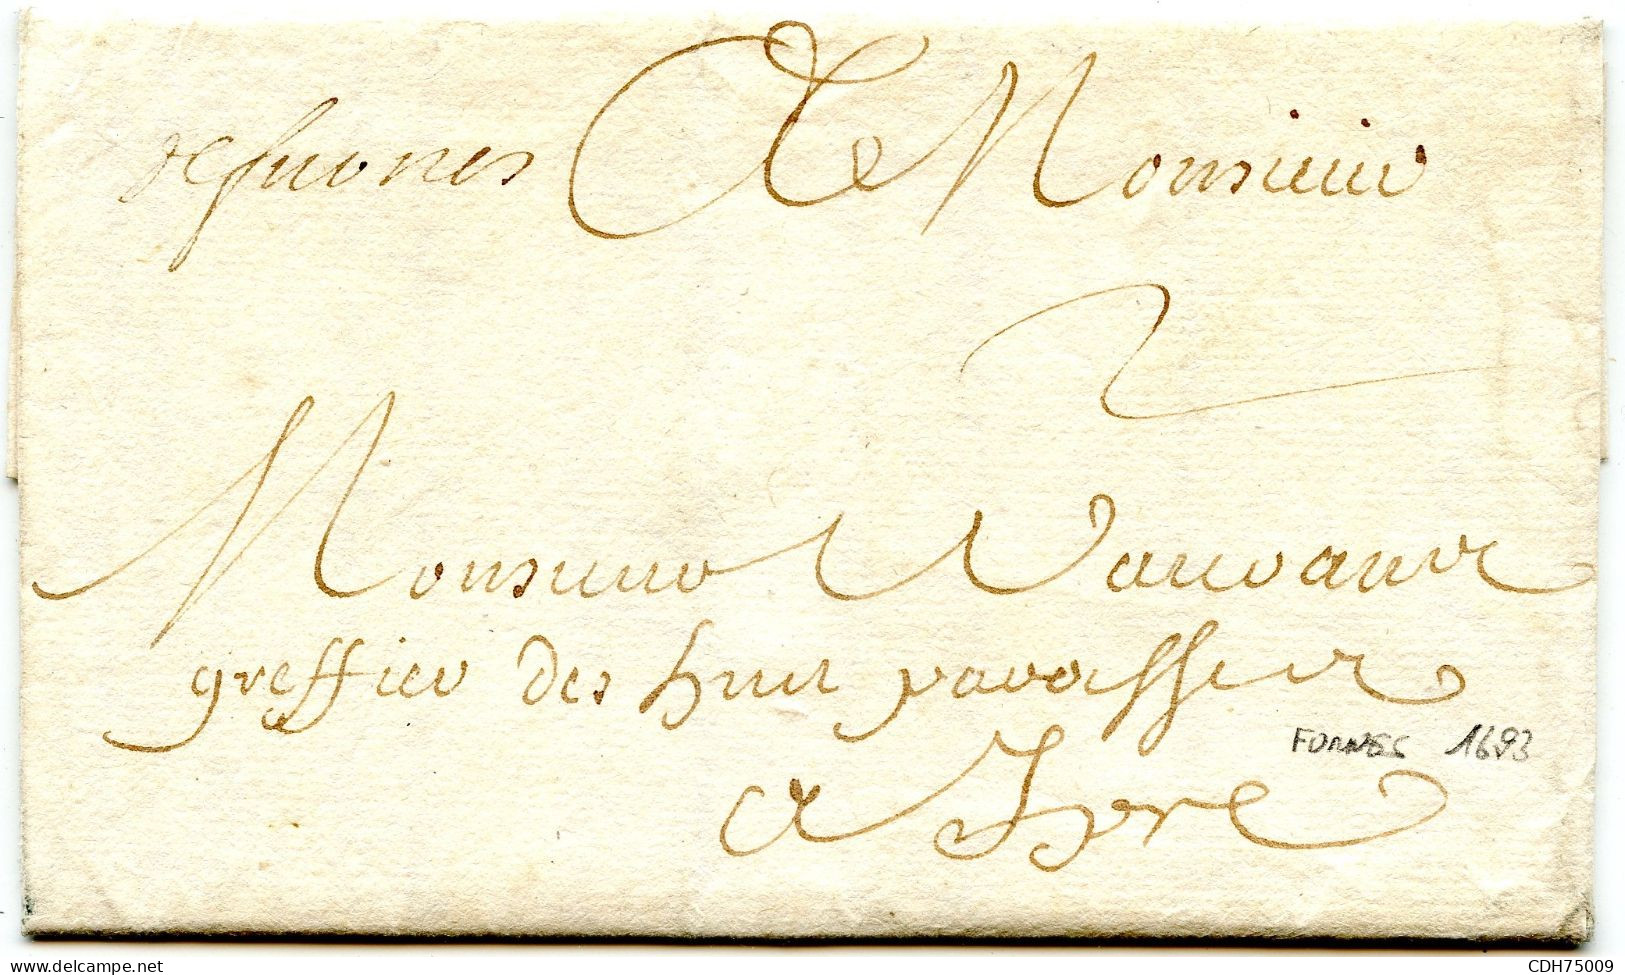 de furnes A Monsieur
2
Monsieur
greffier des huit
FURNES 1693
a Ypre
www.delcampe.net
CDH75009